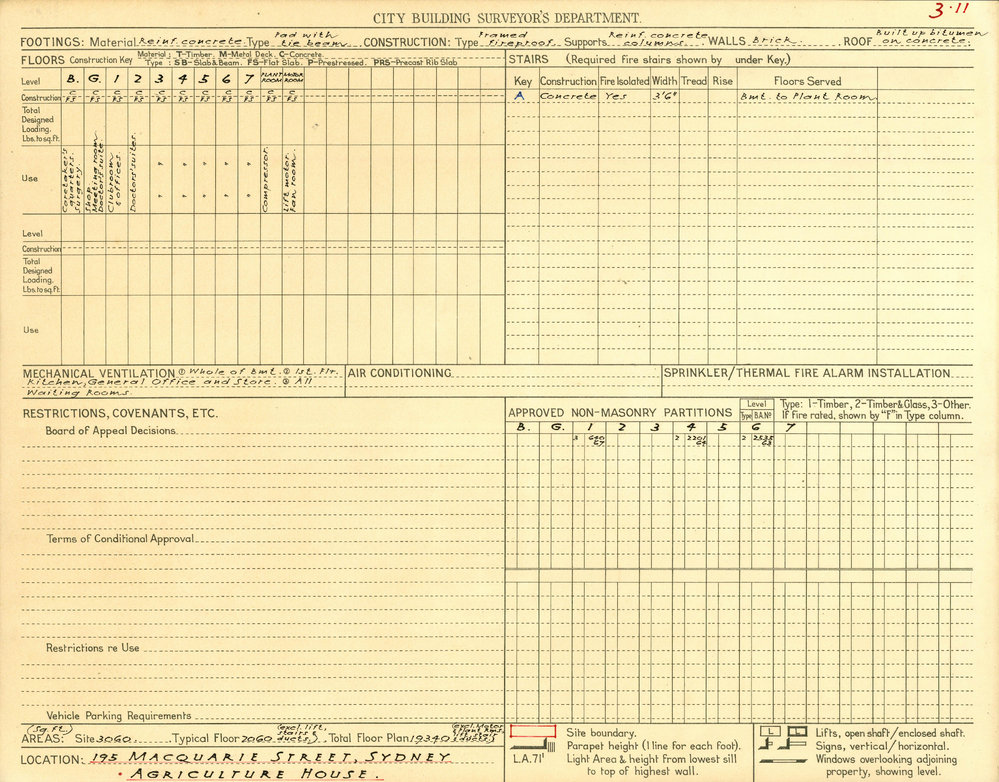 3.11
CITY BUILDING SURVEYOR'S DEPARTMENT.
FOOTINGS: Material Reinf. concrete Type Pad with tie beam CONSTRUCTION: Type Framed fireproof. Supports Reinf. concrete columns. WALLS Brick. ROOF Built up bitumen on concrete.
FLOORS Construction Key Material: T-Timber. M-Metal Deck. C-Concrete.
Type: SB-Slab & Beam. FS-Flat Slab. P-Prestressed. PRS-Precast Rib Slab
Level B. G. 1 2 3 4 5 6 7 PLANT ROOM MOTOR ROOM
Construction C FS C FS C FS C FS C FS C FS C FS C FS C FS C FS C FS
Total Designed Loading. Lbs. to sq. ft.
Use Caretaker's quarters. surgery. Shop Meeting room Doctor's suite. Clubroom & offices Doctors' suites. " " " " " " " " " " Compressor. Lift motor. Fan room.
Level
Construction
Total Designed Loading. Lbs. to sq. ft.
Use
STAIRS (Required fire stairs shown by under Key.)
Key Construction Fire Isolated Width Tread Rise Floors Served
A Concrete Yes 3'6" Bmt. to Plant Room
MECHANICAL VENTILATION ① Whole of Bmt. ② 1st. Flr.
Kitchen, General Office and Store. ③ All
Waiting Rooms.
AIR CONDITIONING
SPRINKLER/THERMAL FIRE ALARM INSTALLATION
RESTRICTIONS, COVENANTS, ETC.
Board of Appeal Decisions.
Terms of Conditional Approval
Restrictions re Use
Vehicle Parking Requirements
APPROVED NON-MASONRY PARTITIONS Level Type B.A. Nº Type: 1-Timber, 2-Timber & Glass, 3-Other.
If fire rated, shown by "F" in Type column.
B. G. 1 2 3 4 5 6 7
3 640/67 2 2201/64 2 2535/63
AREAS: (Sq. ft.) Site 3060. Typical Floor 2060 (excl. lift, stairs & ducts). Total Floor Plan 19340
LOCATION: 195 MACQUARIE STREET, SYDNEY
AGRICULTURE HOUSE.
Site boundary.
Parapet height (1 line for each foot).
L.A.71' Light Area & height from lowest sill
to top of highest wall.
Lifts, open shaft/enclosed shaft.
Signs, vertical/horizontal.
Windows overlooking adjoining
property, showing level.